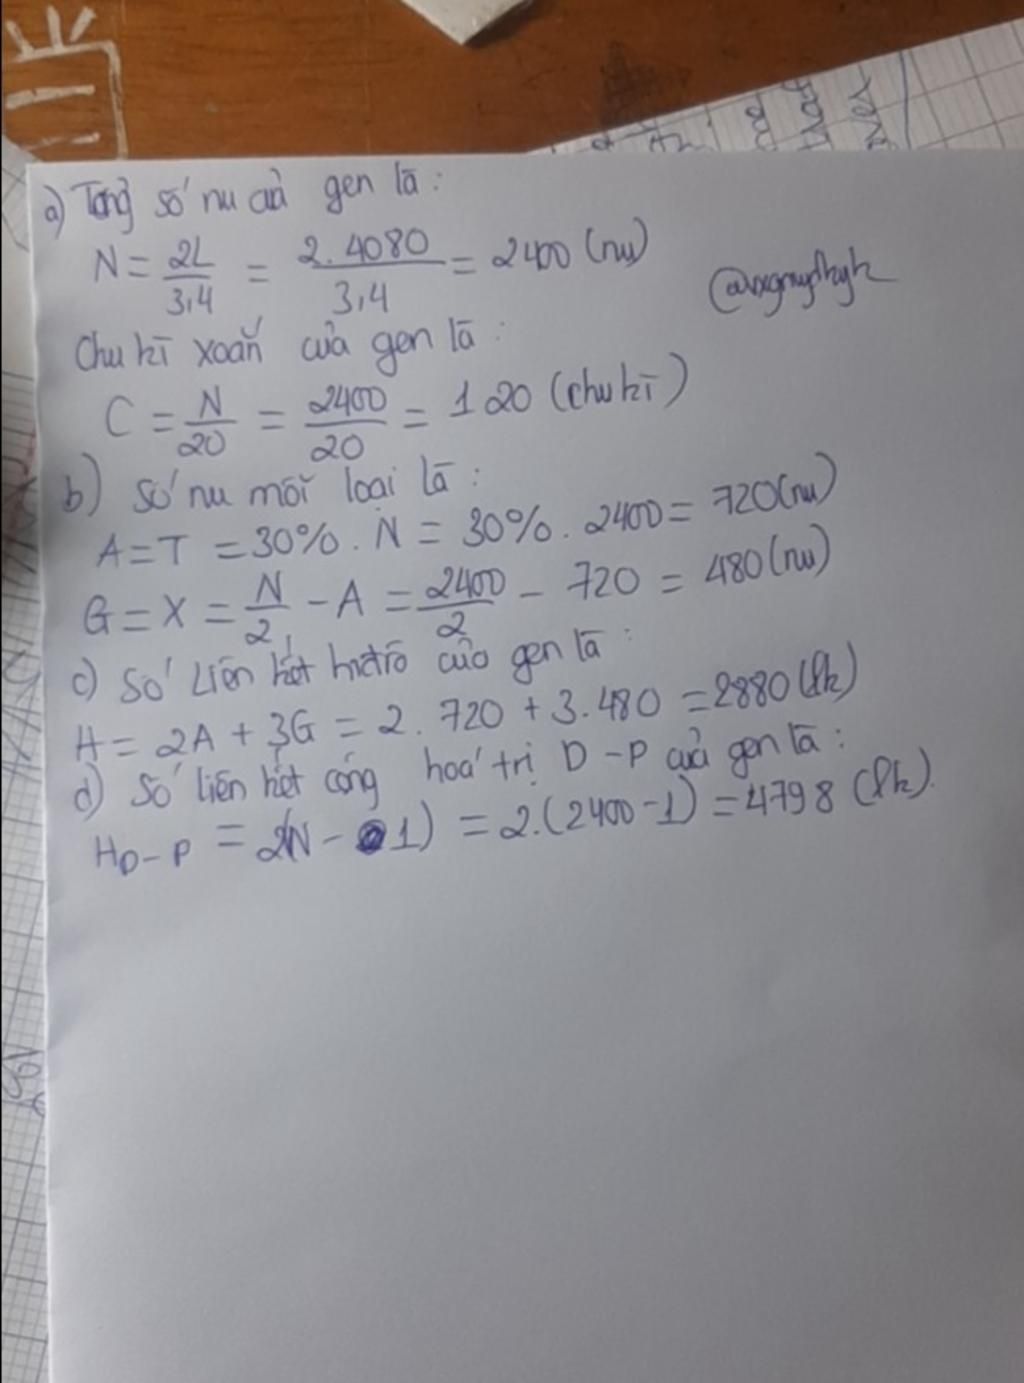 a) Tổng số nu của gen là:
N = 2L/3,4 = 2.4080/3,4 = 2400 (nu)
Chu kì xoắn của gen là:
C = N/20 = 2400/20 = 120 (chu kì)
b) Số nu mỗi loại là:
A = T = 30%. N = 30%. 2400 = 720 (nu)
G = X = N/2 - A = 2400/2 - 720 = 480 (nu)
c) Số liên kết hiđrô của gen là:
H = 2A + 3G = 2. 720 + 3.480 = 2880 (lk)
d) Số liên kết cộng hoá trị D-P của gen là:
H D-P = 2(N - 1) = 2.(2400-1) = 4798 (lk).